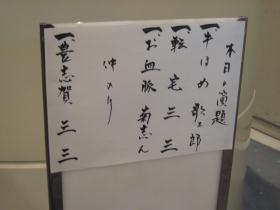 本日の演題
一、牛ほめ 歌る郎
一、転宅 三三
一、お血脈 菊志ん
仲のり
一、豊志賀 三三